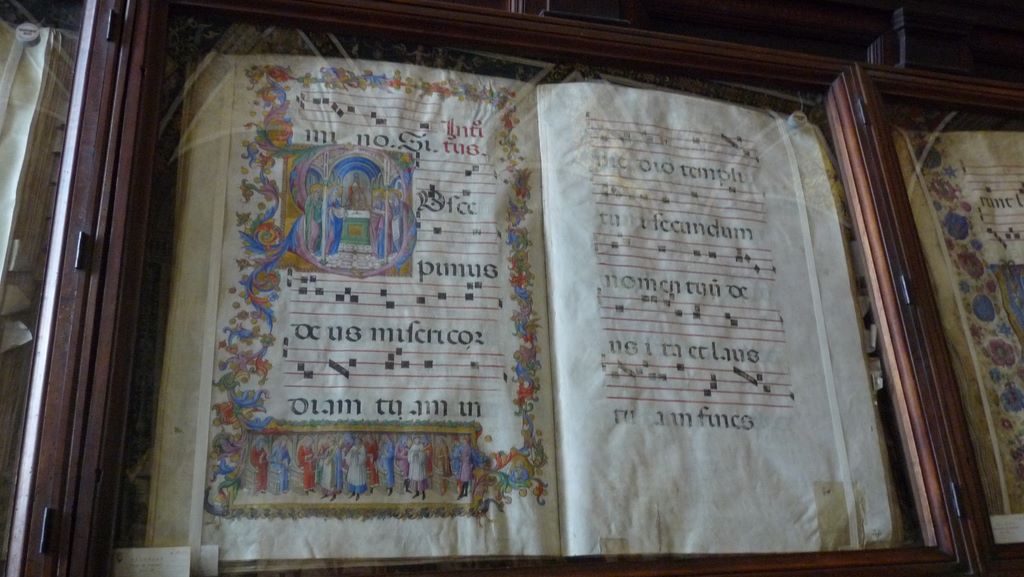 mi no. Si. Inti
tus.
Osce
pimus
de us misericor
diam tu am in
me dio templi
tu i secundum
nomen tuū de
us i ta et laus
tu a in fines